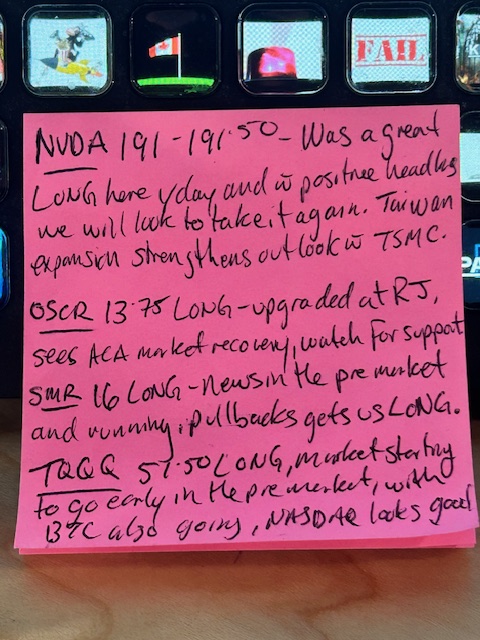 FAIL
NVDA 191-191.50 - Was a great
LONG here yday and w positive headlines
we will look to take it again. Taiwan
expansion strengthens outlook w TSMC.
OSCR 13.75 LONG-upgraded at RJ,
sees ACA market recovery, watch for support
SMR 16 LONG-news in the pre market
and running, pullbacks gets us LONG.
TQQQ 57.50 LONG, market starting
to go early in the premarket, with
BTC also going, NASDAQ looks good